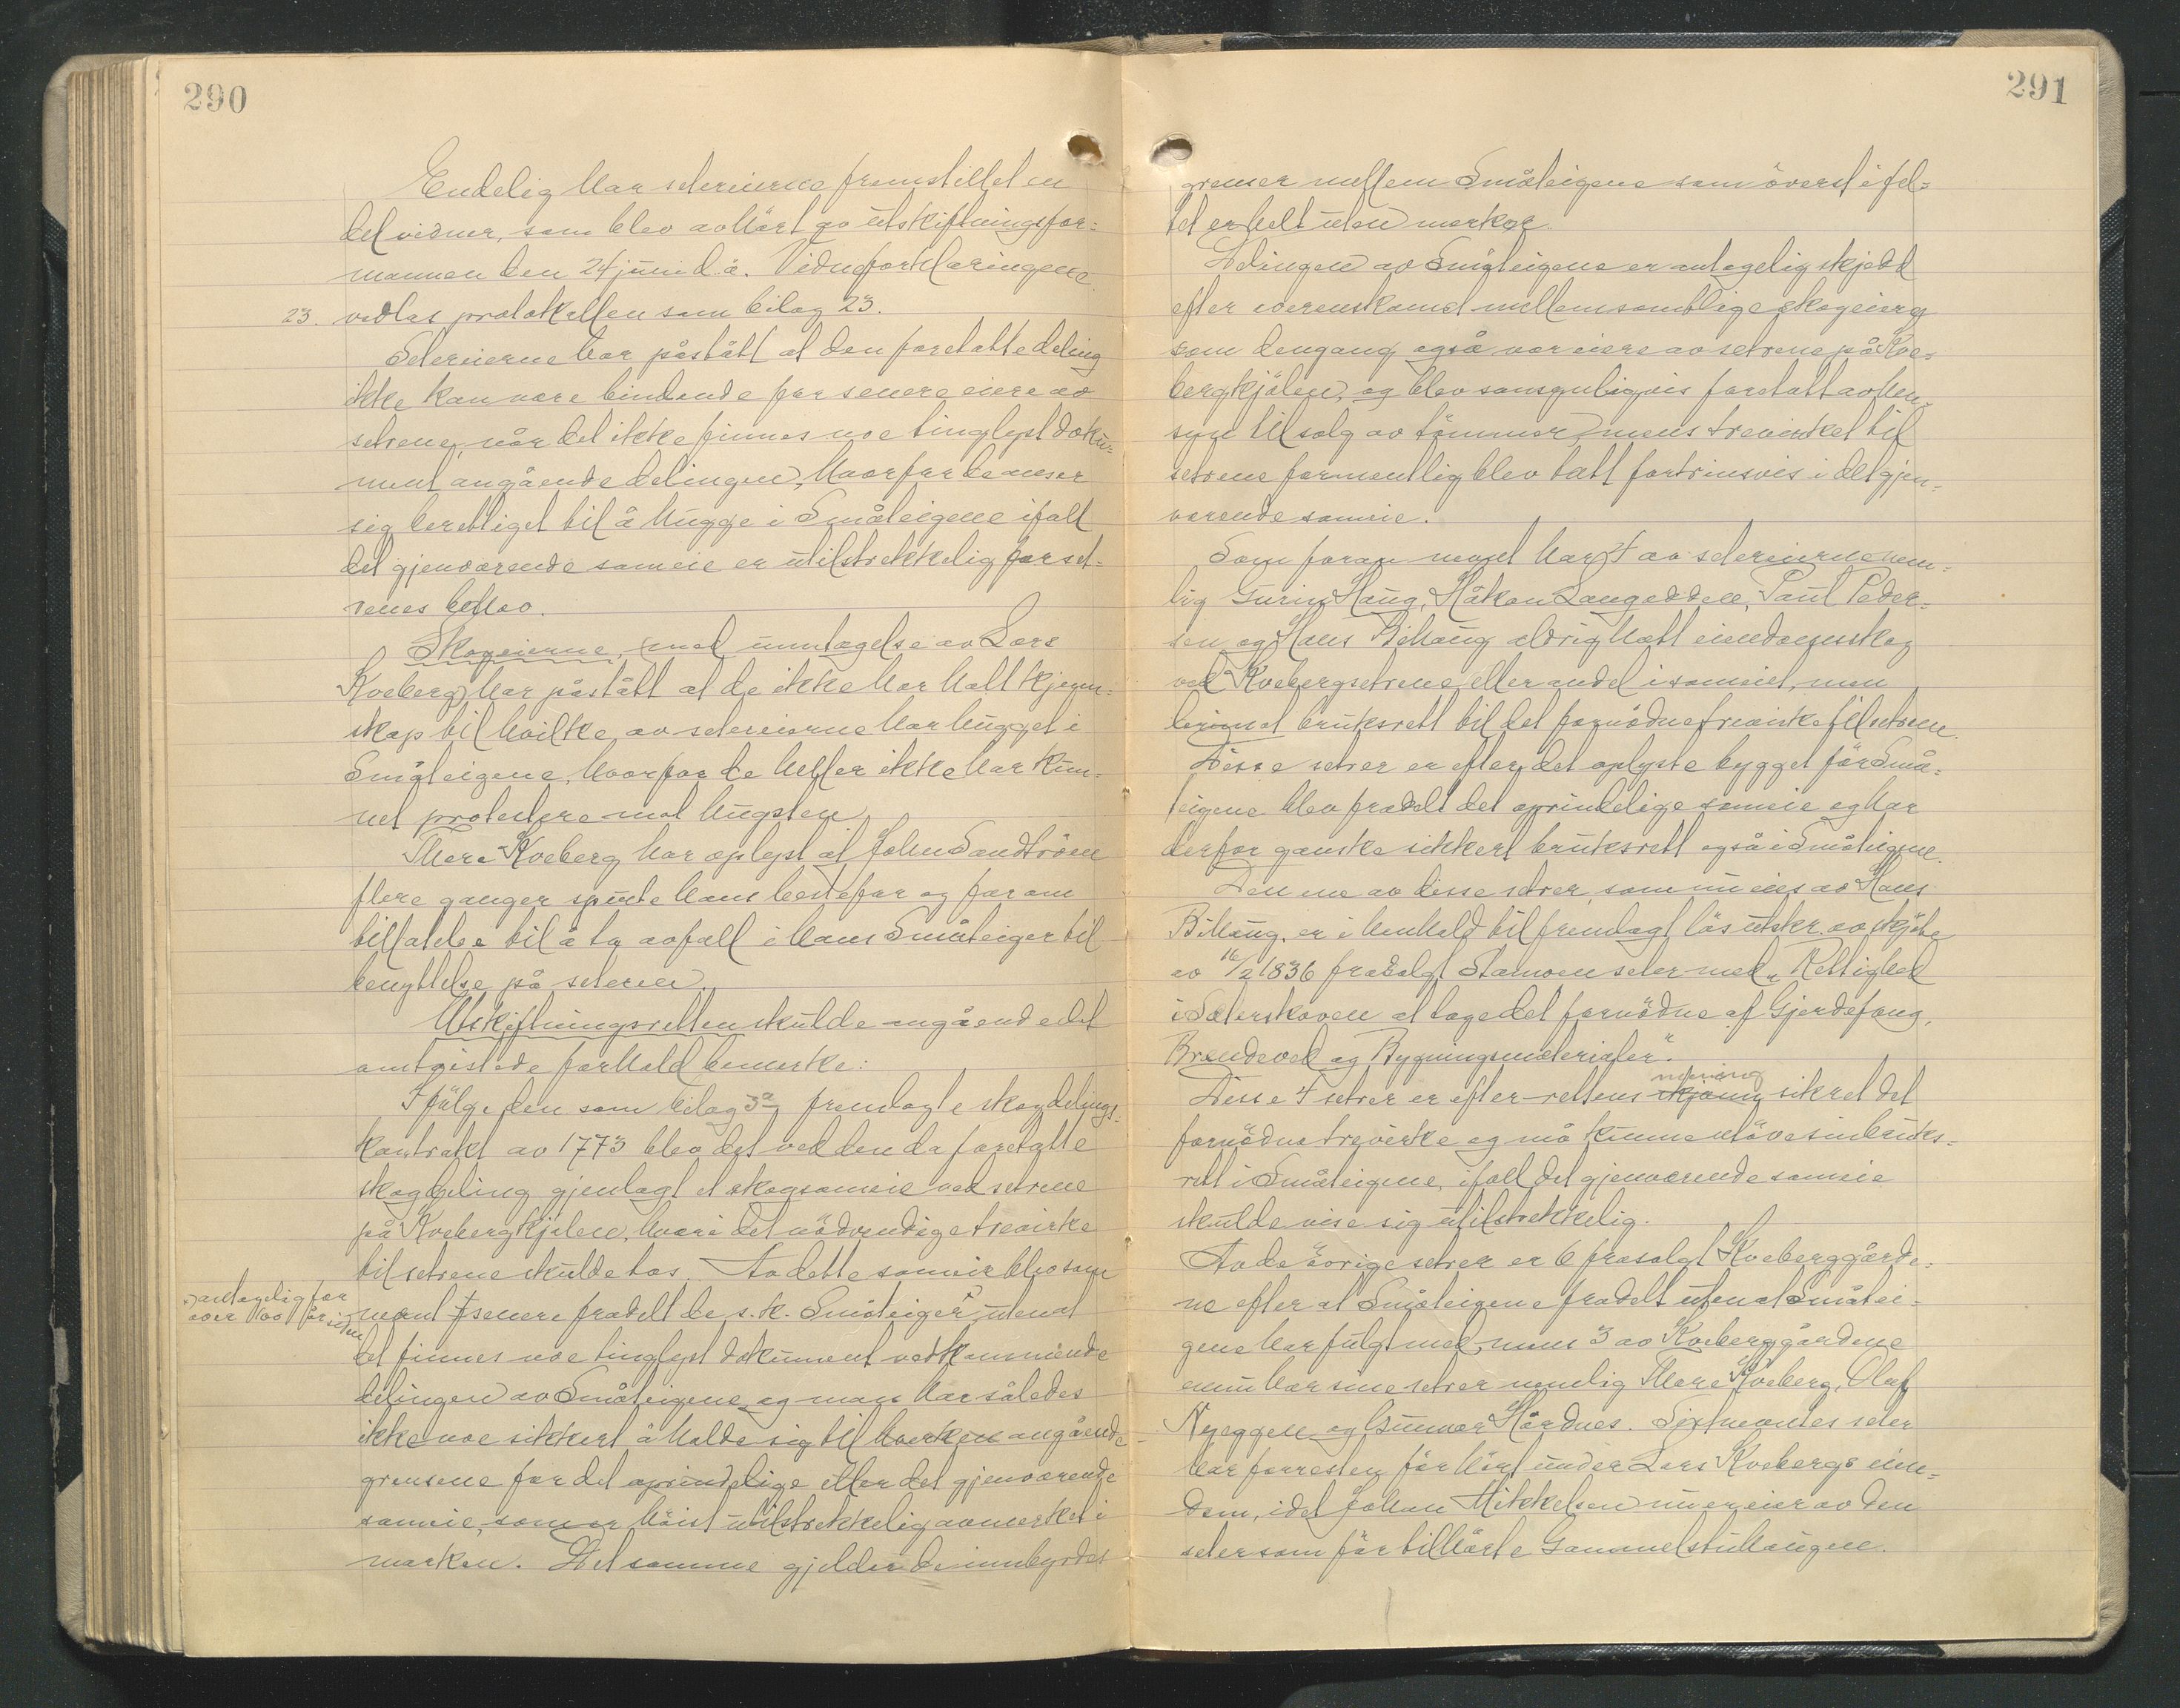 290
Endelig har setereierne fremstillet en
del vidner, som blev avhört av utskiftningsfor=
mannen den 24 juni d.å. Vidneforklaringene
23. vedlas protokollen som bilag 23.
Setereierne har påstått at den foretatte deling
ikke kan være bindende for senere eiere av
setrene, når det ikke finnes noe tinglyst doku=
ment angående delingen, hvorfor de anser
sig berettiget til å hugge i Småteigene ifall
det gjenværende sameie er utilstrekkelig for set=
renes behov.
Skogeierne, med unntagelse av Lars
Kveberg, har påstått at de ikke har hatt kjenn=
skap til hvilke av setereierne har hugget i
Småteigene, hvorfor de heller ikke har kun=
net protestere mot hugsten.
Thore Kveberg har oplyst at Johan Sandtröen
flere ganger spurte hans bestefar og far om
tillatelse til å ta avfall i hans Småteiger til
benyttelse på seteren.
Utskiftningsretten skulde angående det
omtvistede forhold bemerke:
Ifölge den som bilag 3a fremlagte skogdelings=
kontrakt av 1773 blev det ved den da foretatte
skogdeling gjenlagt et skogsameie ved setrene
på Kvebergkjölen, hvori det nödvendige trevirke
til setrene skulde tas. Av dette sameie blev som
x) antagelig for
over 100 år siden
nevnt x senere fradelt de s.k. Småteiger, uten at
det finnes noe tinglyst dokument vedkommende
delingen av Småteigene, og man har således
ikke noe sikkert å holde sig til hverken angående
grensene for det oprindelige eller det gjenværende
sameie, som er höist utilstrekkelig avmerket i
marken. Det samme gjelder de innbyrdes
291
grenser mellem Småteigene som överst i fel=
tet er helt uten merker.
Delingen av Småteigene er antagelig skjedd
efter overenskomst mellem samtlige skogeiere
som dengang også var eiere av setrene på Kve=
bergkjölen, og blev sansynligvis foretatt av hen=
syn til salg av tömmer, mens trevirket til
setrene formentlig blev tatt fortrinsvis i det gjen=
værende sameie.
Som foran nevnt har 4 av setereierne nem=
lig Gurin Haug, Håkon Langodden, Paul Peder=
sen og Hans Bihaug aldrig hatt eiendomsskog
ved Kvebergsetrene eller andel i sameiet, men
derimot bruksrett til det fornödne trevirke til setrene.
Disse setrer er efter det oplyste bygget för Små=
teigene blev fradelt det oprindelige sameie og har
derfor ganske sikkert bruksrett også i Småteigene.
Den ene av disse setrer, som nu eies av Hans
Bihaug, er i henhold til fremlagt lös utskr. av skjöte
av 16/2 1836 frasolgt Stamoen seter med „Rettighed
i Sæterskoven at tage det fornödne af Gjerdefang,
Brændeved og Bygningsmaterialer".
mening
Disse 4 setrer er efter rettens skjönn sikret det
fornödne trevirke og må kunne utöve sin bruks=
rett i Småteigene, ifall det gjenværende sameie
skulde vise sig utilstrekkelig.
Av de övrige setrer er 6 frasolgt Kveberggårde=
ne efter at Småteigene fradelt uten at Småtei=
gene har fulgt med, mens 3 av Kveberggårdene
ennu har sine setrer nemlig Thore Kveberg, Olaf
Nyeggen og Gunnar Hårdnes. Sistnevntes seter
har forresten för hört under Lars Kvebergs eien=
dom, idet Johan Mikkelsen nu er eier av den
seter som för tilhörte Gammelstuhaugen.